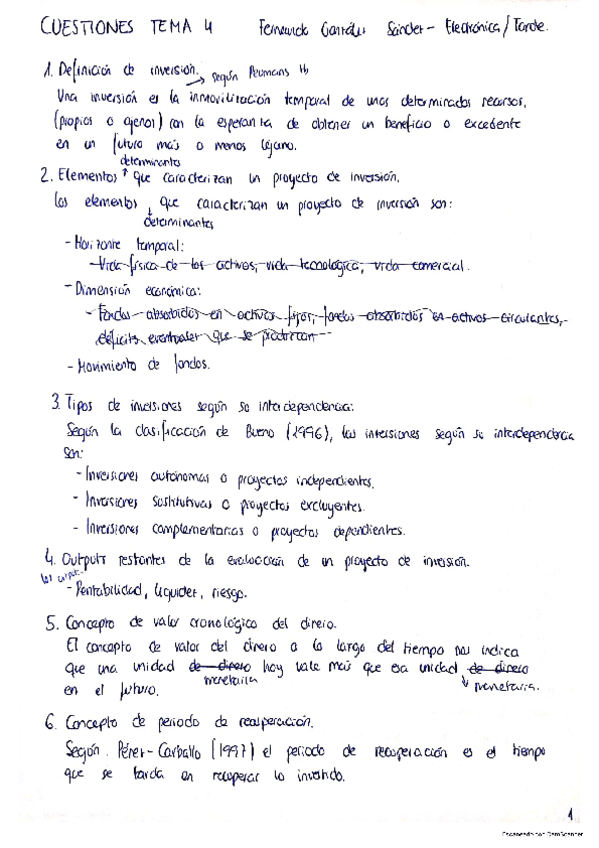 CUESTIONES TEMA 4 Fernando González Sánchez - Electrónica / Tarde.
1. Definición de inversión. según Peumans
Una inversión es la inmovilización temporal de unos determinados recursos,
(propios o ajenos) con la esperanza de obtener un beneficio o excedente
en un futuro más o menos lejano.
determinantes
2. Elementos ↑ que caracterizan un proyecto de inversión.
Los elementos que caracterizan un proyecto de inversión son:
determinantes
- Horizonte temporal:
- Vida física de los activos, vida tecnológica, vida comercial.
- Dimensión económica:
- Fondos absorbidos en activos fijos, fondos absorbidos en activos circulantes,
déficits eventuales que se produzcan
- Movimiento de fondos.
3. Tipos de inversiones según su interdependencia:
Según la clasificación de Bueno (1996), las inversiones según su interdependencia
son:
- Inversiones autónomas o proyectos independientes.
- Inversiones sustitutivas o proyectos excluyentes.
- Inversiones complementarias o proyectos dependientes.
4. Outputs restantes de la evaluación de un proyecto de inversión.
- Rentabilidad, liquidez, riesgo.
5. Concepto de valor cronológico del dinero.
El concepto de valor del dinero a lo largo del tiempo nos indica
que una unidad de dinero hoy vale más que esa unidad de dinero
monetaria monetaria.
en el futuro.
6. Concepto de periodo de recuperación.
Según Pérez-Carballo (1997) el periodo de recuperación es el tiempo
que se tarda en recuperar lo invertido.
1
Escaneado con CamScanner